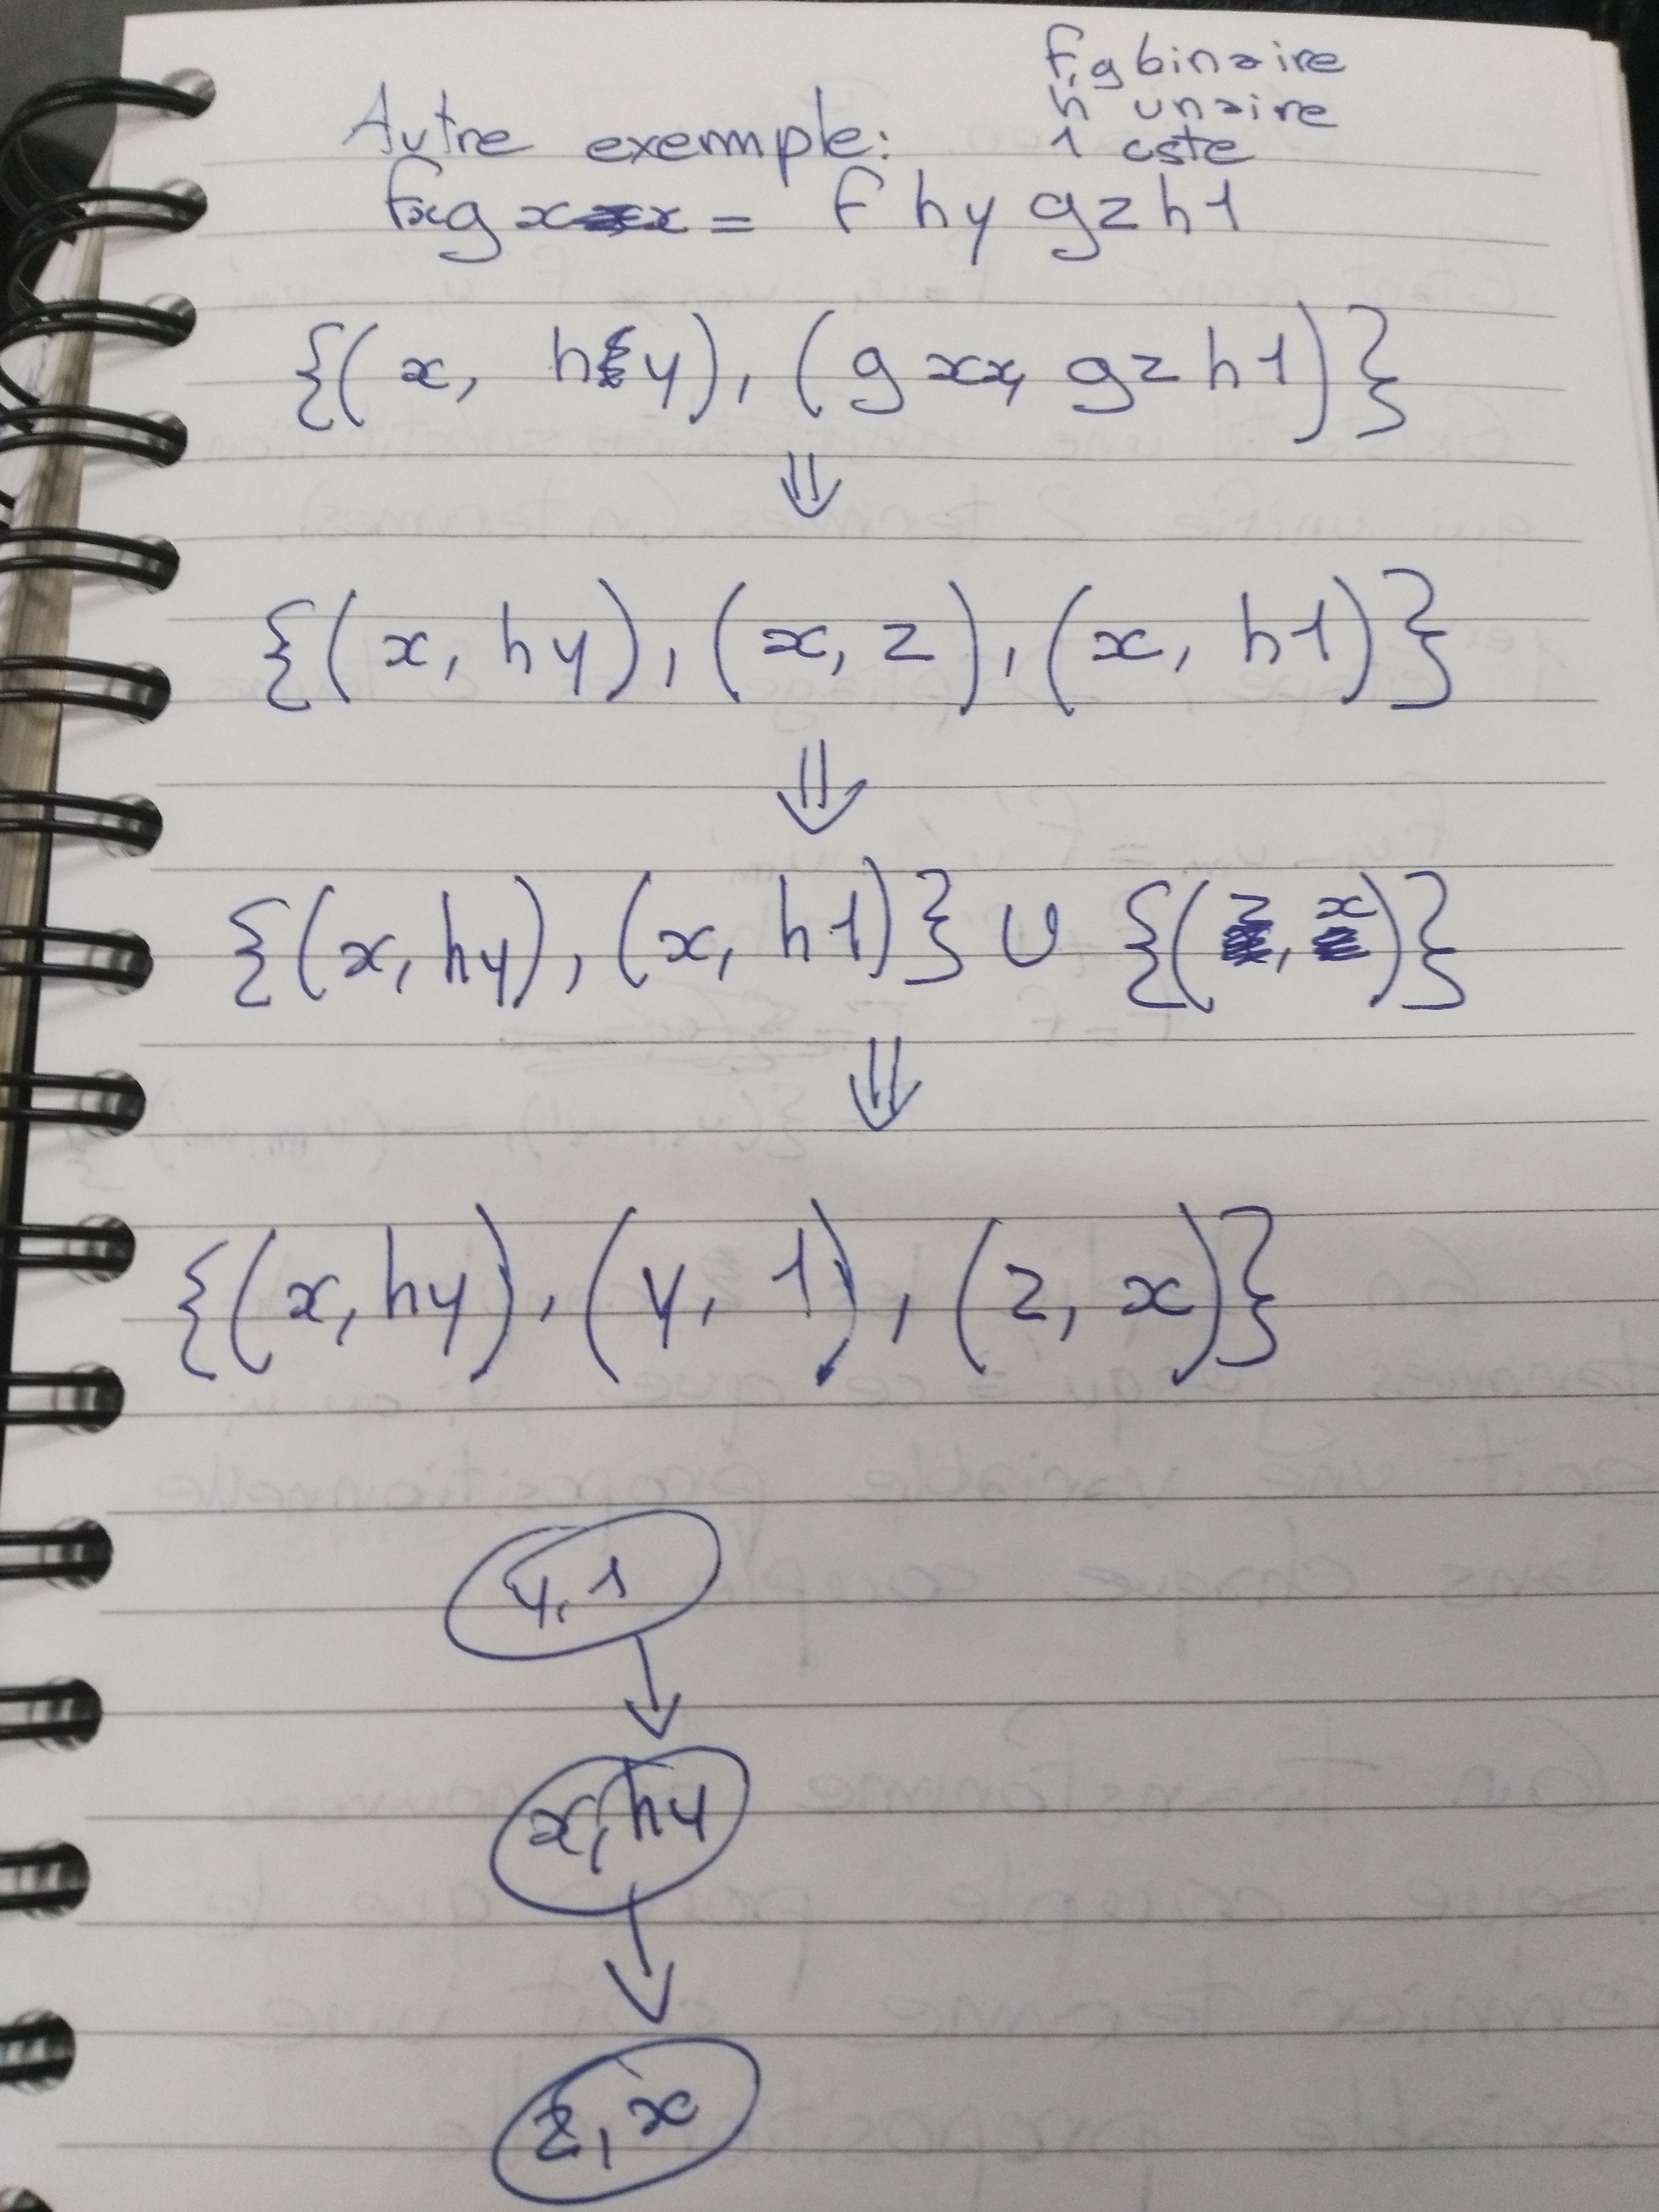 F,g binaire
h unaire
Autre exemple: 1 cste
Fxg xx = F hy gzh1
{(x, hy), (g xx, gz h1)}
⇓
{(x, hy), (x, z), (x, h1)}
⇓
{(x, hy), (x, h1)} ∪ {(z, x)}
⇓
{(x, hy), (y, 1), (z, x)}
y, 1
↓
x, hy
↓
z, x